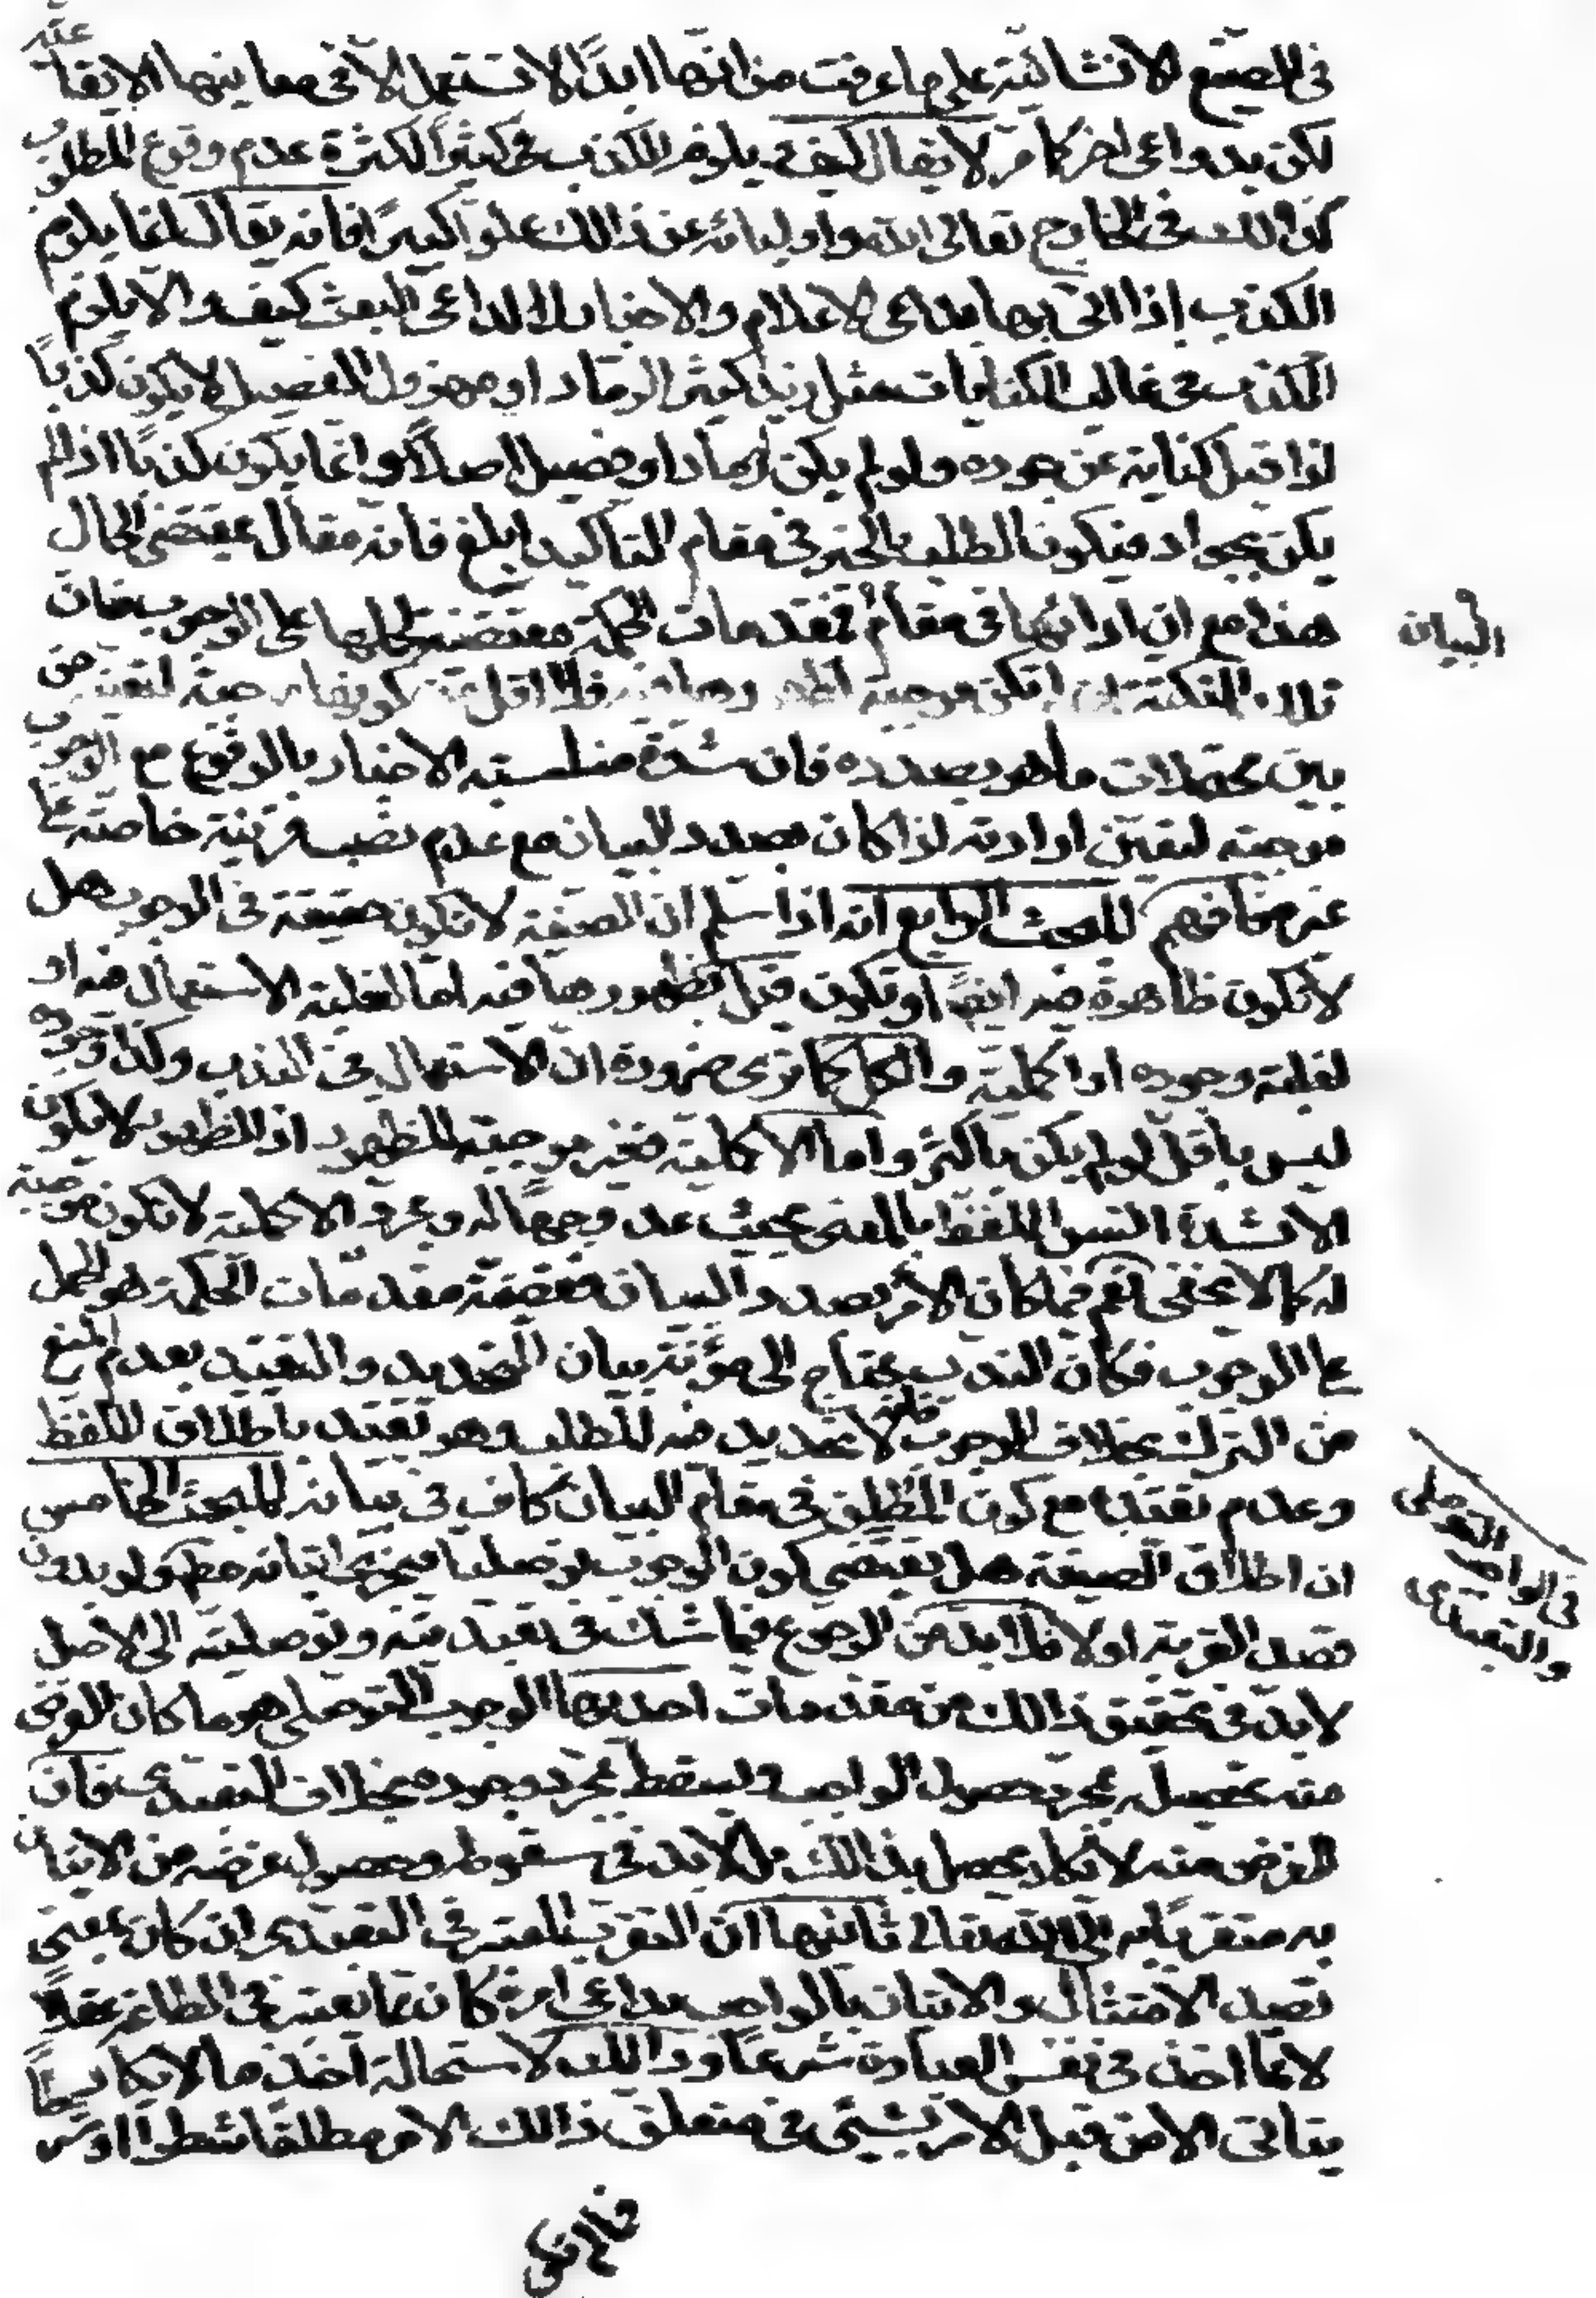 في الصيغ الانشائية على ما عرفت من انها ابدًا لا تستعمل الا في معانيها الايقاعية
لكن بدواعى اخر كما مر لا يقال كيف ويلزم الكذب كثيرًا لكثرة عدم وقوع المطلوب
كذالك في الخارج تعالى الله واوليائه عن ذالك علوا كبيرًا فانه يقال انما يلزم
الكذب اذا اتى بها بداعى الاعلام والاخبار لا لداعى البعث كيف والا يلزم
الكذب في غالب الكنايات مثل زيد كثير الرماد او مهزول الفصيل لا يكون كذبًا
اذا قيل كناية عن جوده ولو لم يكن له رماد او فصيل اصلًا وانما يكون كذبًا اذا لم
يكن بجواد فيكون الطلب بالخبر في مقام التاكيد ابلغ فانه مقال بمقتضى الحال
هذا مع ان اذا اتى بها في مقام فمقدمات الحكمة مقتضية لحملها على الوجوب فان
تلك النكتة ان لم تكن موجبة لظهورها فيه فلا اقل من كونها موجبة لتعينه من
بين محتملات ما هو بصدده فان شدة مناسبته الاخبار بالوقوع مع الوجوب
موجبة لتعين ارادته اذا كان بصدد البيان مع عدم نصب قرينة خاصة على
غيره فافهم المبحث الرابع انه اذا سلم ان الصيغة لا تكون حقيقة في الوجوب هل
لا تكون ظاهرة فيه ايضًا او تكون قيل بظهورها فيه اما لغلبة الاستعمال فيه او
لغلبة وجوده او اكملية والكل كما ترى ضرورة ان الاستعمال في الندب وكذا وجوده
ليس باقل لو لم يكن باكثر واما الاكملية فغير موجبة للظهور اذ الظهور لا يكون
الا لشدة انس اللفظ بالمعنى بحيث عد وجهًا له ومجرد الاكملية لا تكون موجبة
له كما لا يخفى نعم فيما كان الامر بصدد البيان فقضية مقدمات الحكمة هو الحمل
على الوجوب فكان الندب يحتاج الى مؤنة بيان التحديد والتقييد بعدم المنع
من الترك بخلاف الوجوب فانه لا تحديد فيه للطلب وهو تقييد باطلاق اللفظ
وعدم تقييده مع كون المطلق في مقام البيان كاف في بيانه المبحث الخامس
ان اطلاق الصيغة هل يقتضى كون الوجوب توصليا فيجزى اتيانه مطلقا ولو بدون
قصد القربة او لا فلا بد من الرجوع فيما شك في تعبديته وتوصليته الى الاصل
لا بد في تحقيق ذالك من مقدمات احديها الوجوب التوصلى هو ما كان الغرض
منه تحصيله بمجرد حصول الواجب ويسقط بمجرد وجوده بخلاف التعبدى فان
الغرض منه لا يكاد يحصل بذالك بل لا بد في سقوطه وحصول غرضه من الاتيان
به متقربًا به الى الله تعالى ثانيها ان التقرب المعتبر في التعبدى ان كان بمعنى
قصد الامتثال والاتيان بالواجب بداعى امره كان مما يعتبر في الطاعة عقلًا
لا مما اخذ في نفس العبادة شرعًا وذالك لاستحالة اخذ ما لا يكاد
يتاتى الا من قبل الامر بشيئ في متعلق ذالك الامر مطلقا شطرا او شرطًا
البيان
في الواجب التوصلى
والتعبدى